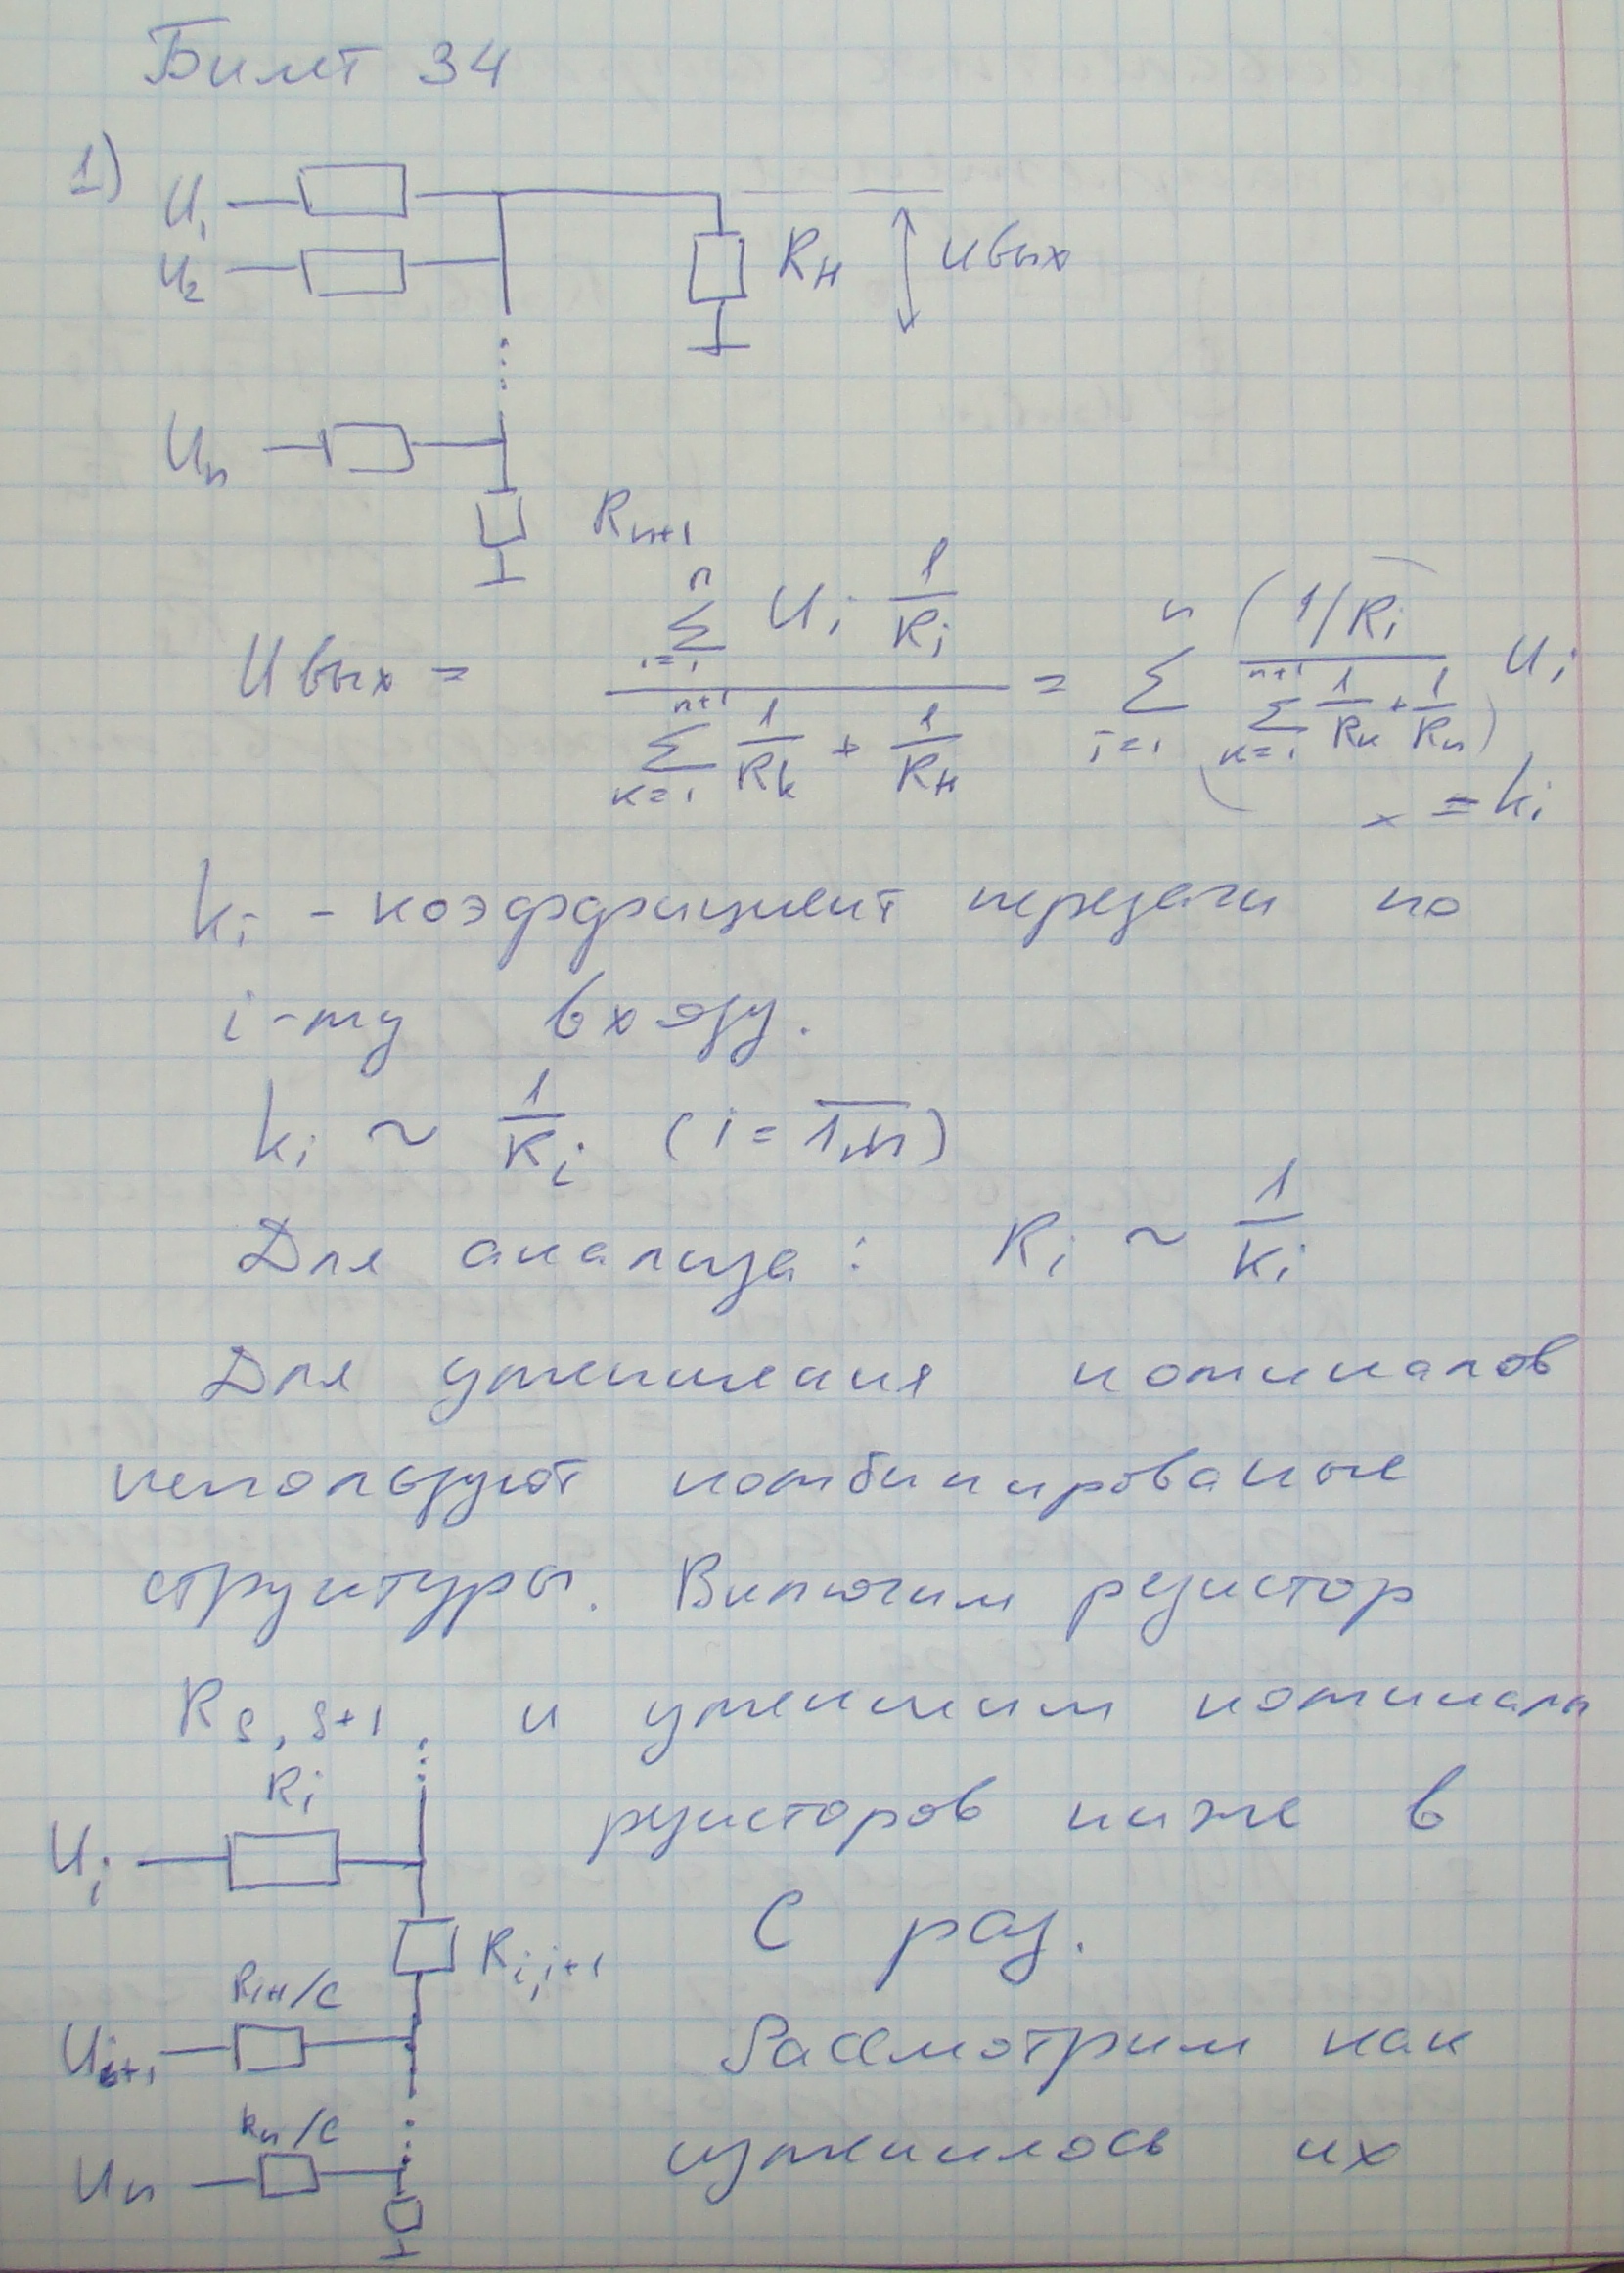 Билет 34
1) U₁
Rн Uвых
U₂
Uₙ
Rₙ₊₁
Uвых = (∑_{i=1}^{n} Uᵢ 1/Rᵢ) / (∑_{k=1}^{n+1} 1/Rₖ + 1/Rн) = ∑_{i=1}^{n} ( (1/Rᵢ) / (∑_{k=1}^{n+1} 1/Rₖ + 1/Rн) ) Uᵢ
= kᵢ
kᵢ - коэффициент передачи по
i-му входу.
kᵢ ~ 1/Rᵢ (i = 1,n)
Для анализа: Rᵢ ~ 1/kᵢ
Для уменьшения номиналов
используют комбинированые
структуры. Включим резистор
R_{s, s+1}, и уменьшим номиналы
Rᵢ
резисторов ниже в
Uᵢ
C раз.
R_{i,i+1}
Rᵢ₊₁/C
Uᵢ₊₁
Рассмотрим как
Rₙ/C
изменилось их
Uₙ